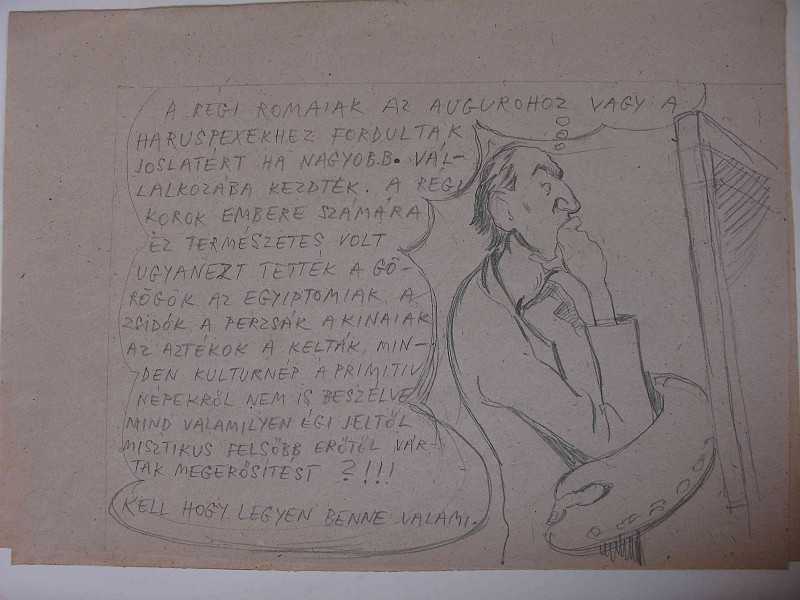 A REGI ROMAIAK AZ AUGUROHOZ VAGY A
HARUSPEXEKHEZ FORDULTAK
JOSLATÉRT HA NAGYOBB. VÁL-
LALKOZÁBA KEZDTÉK. A RÉGI
KOROK EMBERE SZÁMÁRA
EZ TERMÉSZETES VOLT
UGYANEZT TETTÉK A GÖ-
RÖGÖK AZ EGYIPTOMIAK, A
ZSIDÓK A PERZSÁK A KINAIAK
AZ AZTÉKOK A KELTÁK, MIN-
DEN KULTURNÉP A PRIMITIV
NÉPEKRŐL NEM IS BESZÉLVE
MIND VALAMILYEN ÉGI JELTŐL
MISZTIKUS FELSŐBB ERŐTŐL VÁR-
TAK MEGERŐSITÉST ?!!!
KELL HOGY LEGYEN BENNE VALAMI.